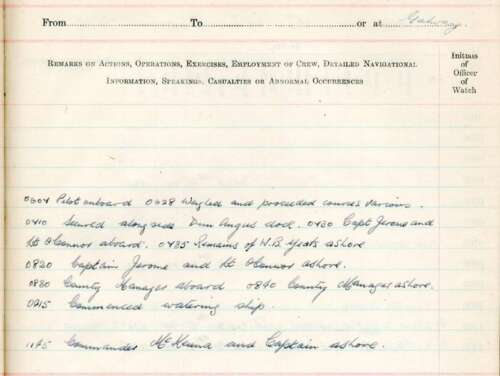 From To or at Galway.
REMARKS ON ACTIONS, OPERATIONS, EXERCISES, EMPLOYMENT OF CREW, DETAILED NAVIGATIONAL
INFORMATION, SPEAKINGS, CASUALTIES OR ABNORMAL OCCURRENCES
Initials
of
Officer
of
Watch
0604 Pilot onboard 0628 Weighed and proceeded courses various.
0710 Secured alongside Dun Angus dock. 0730 Capt Jerome and
Lt O'Connor aboard. 0735 Remains of W.B. Yeats ashore
0820 Captain Jerome and Lt O'Connor ashore.
0830 County Manager aboard 0840 County Manager ashore.
0915 Commenced watering ship.
1145 Commander McKenna and Captain ashore.